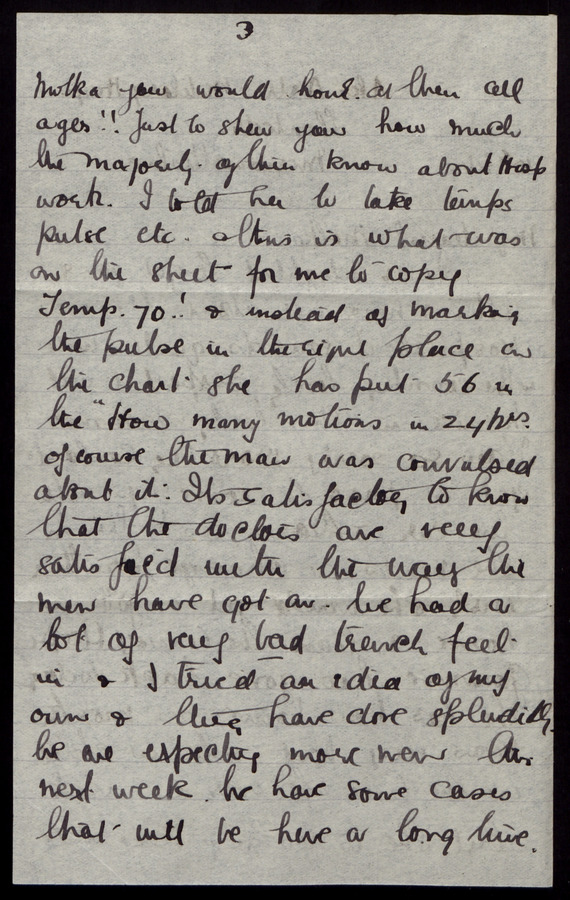 3
Motka you would howl at them all
ages!! Just to shew you how much
the majority of them know about Hosp
work. I told her to take temps
pulse etc. & this is what was
on the sheet for me to copy
Temp. 70.! & instead of marking
the pulse in the right place on
the chart she has put 56 in
the "How many motions in 24 hrs.
of course the man was convulsed
about it. Its satisfactory to know
that the doctors are very
satisfied with the way the
men have got on. We had a
lot of very bad trench feet
in & I tried an idea of my
own & they have done splendidly.
We are expecting more men
next week. We have some cases
that will be here a long time.